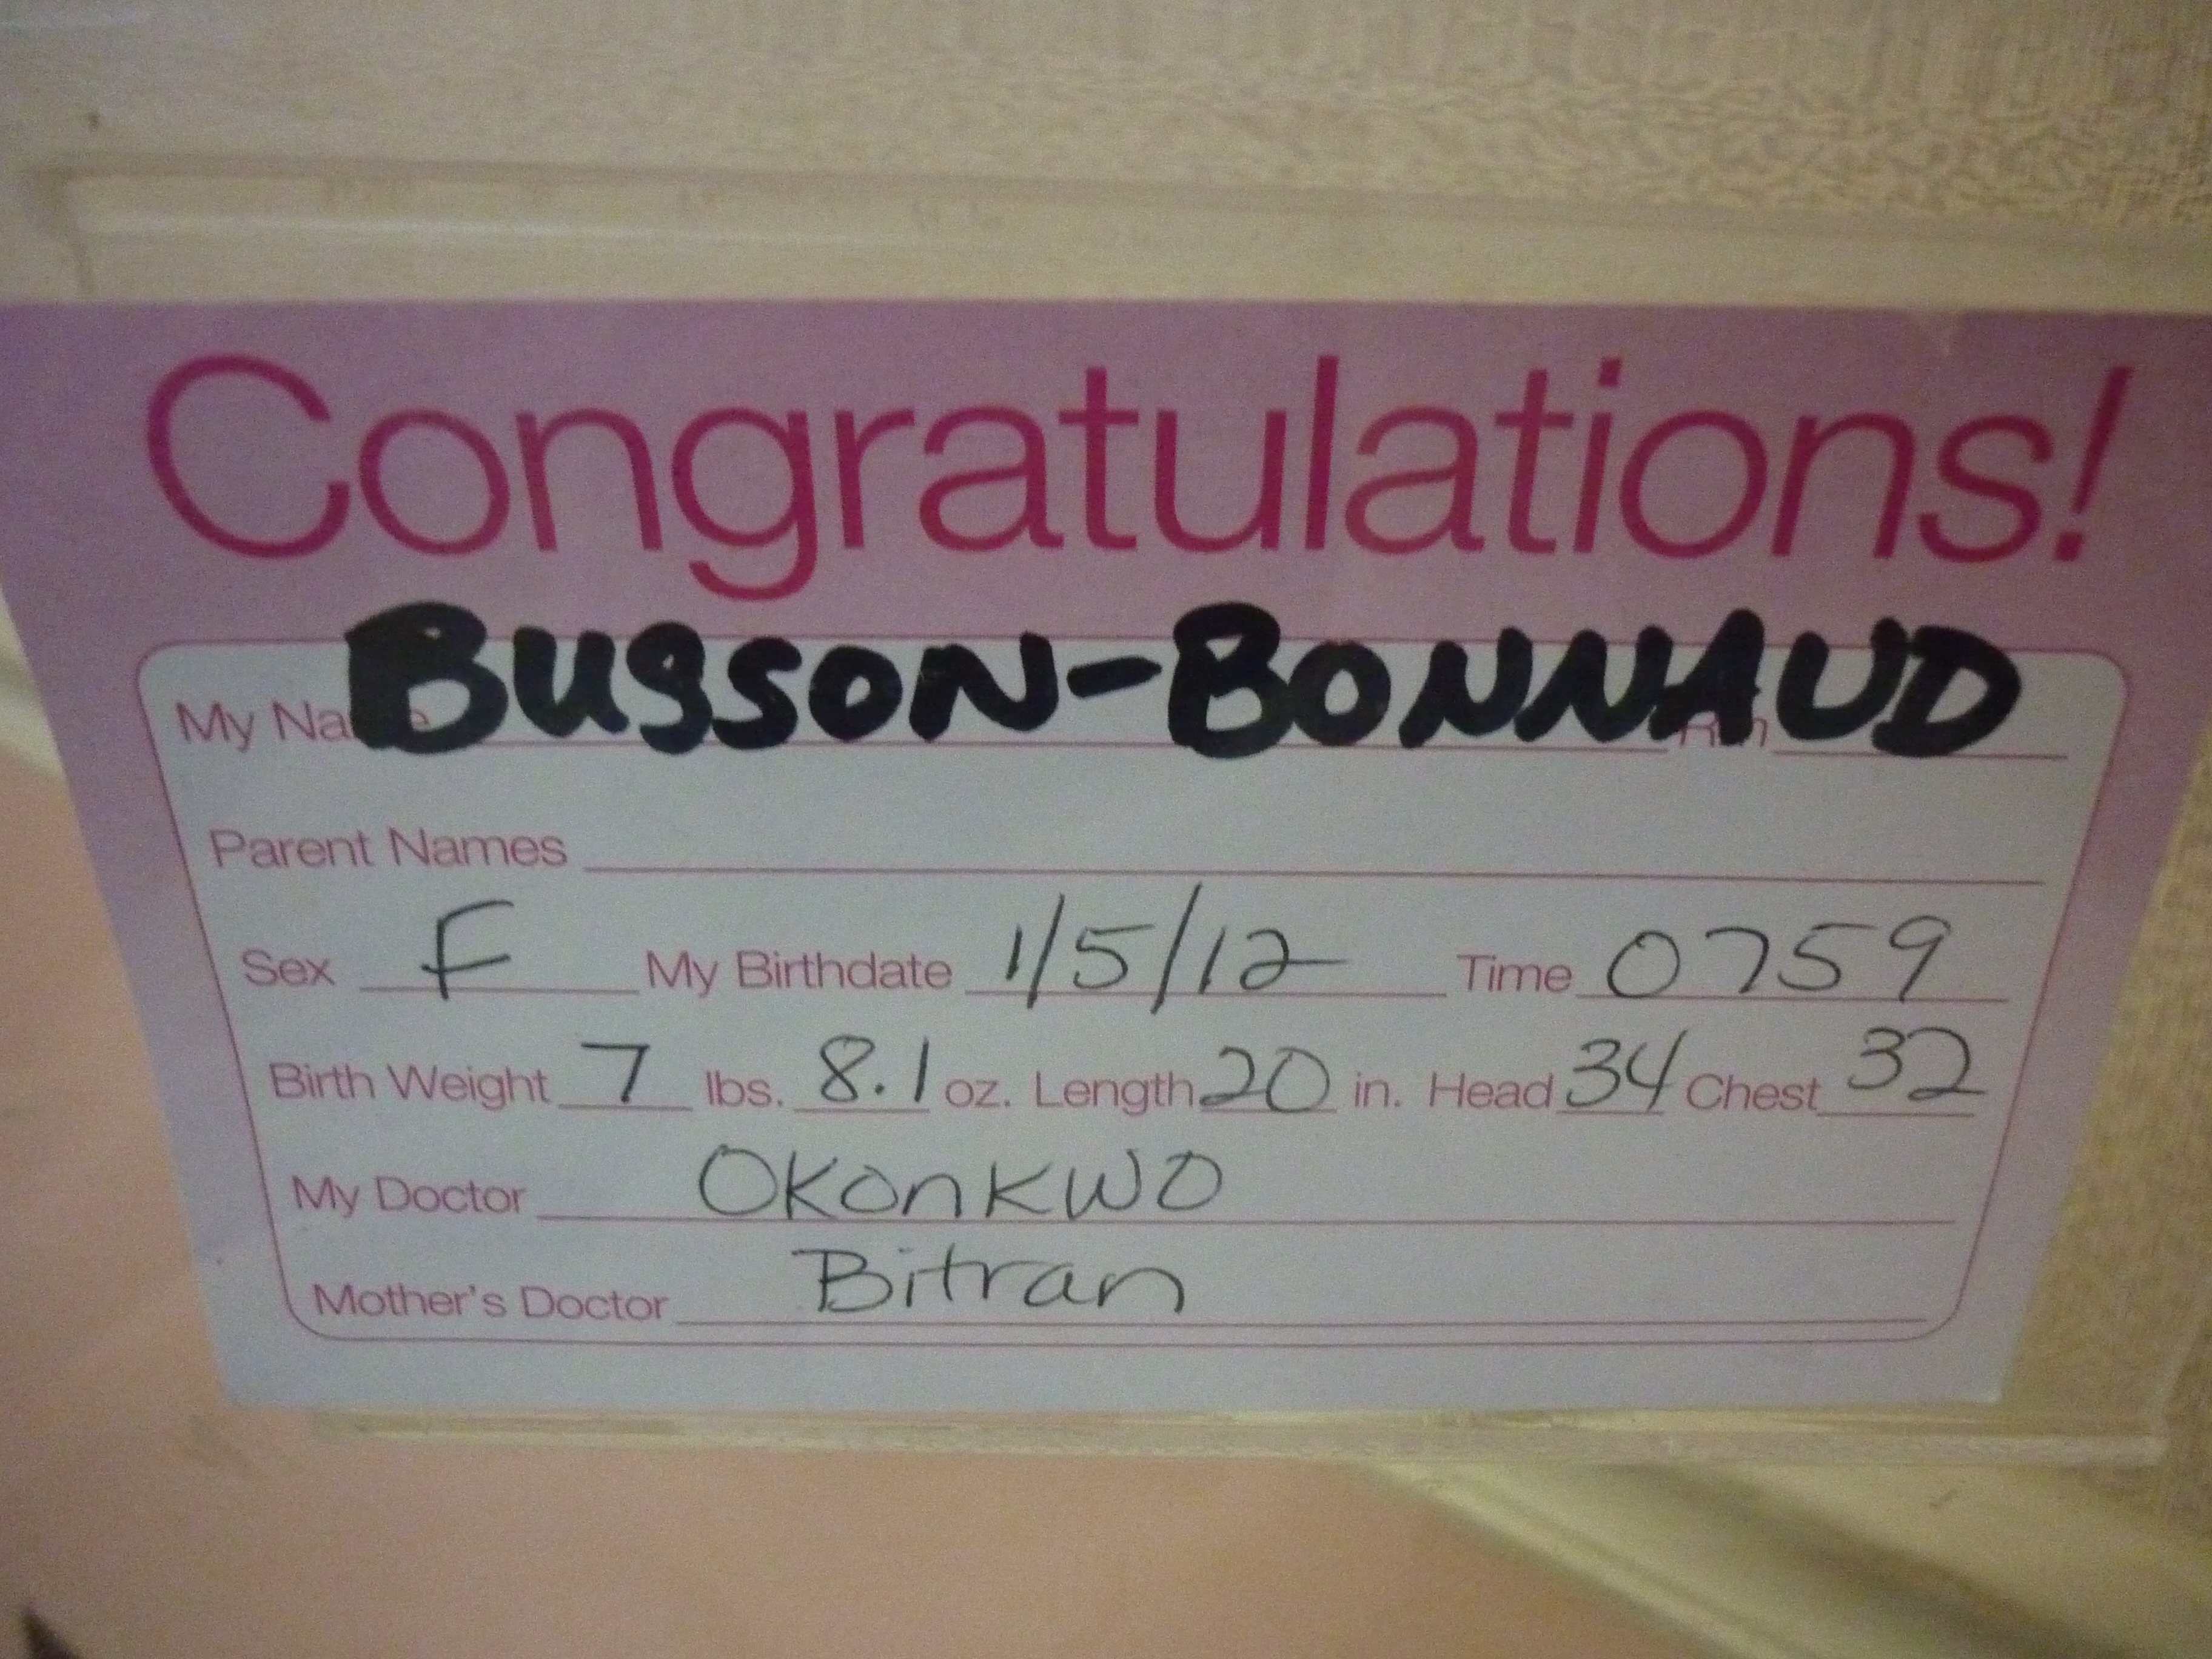 Congratulations!
My Name BUSSON-BONNAUD
Parent Names
Sex F My Birthdate 1/5/12 Time 0759
Birth Weight 7 lbs. 8.1 oz. Length 20 in. Head 34 Chest 32
My Doctor Okonkwo
Mother's Doctor Bitran